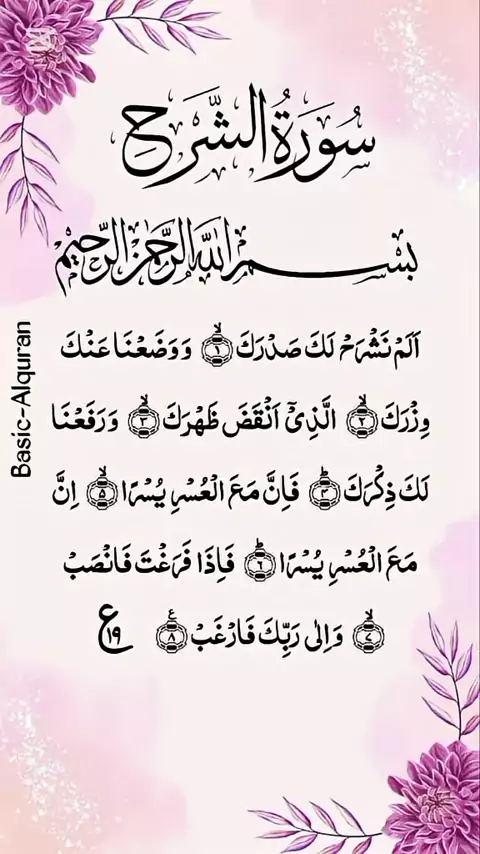 سُورَةُ الشَّرْحِ
بِسْمِ اللهِ الرَّحْمٰنِ الرَّحِيْمِ
اَلَمْ نَشْرَحْ لَكَ صَدْرَكَ ۙ﴿۱﴾ وَوَضَعْنَا عَنْكَ
وِزْرَكَ ۙ﴿۲﴾ الَّذِيْٓ اَنْقَضَ ظَهْرَكَ ۙ﴿۳﴾ وَرَفَعْنَا
لَكَ ذِكْرَكَ ؕ﴿۴﴾ فَاِنَّ مَعَ الْعُسْرِ يُسْرًا ۙ﴿۵﴾ اِنَّ
مَعَ الْعُسْرِ يُسْرًا ؕ﴿۶﴾ فَاِذَا فَرَغْتَ فَانْصَبْ
ۙ﴿۷﴾ وَاِلٰى رَبِّكَ فَارْغَبْ ﴿۸﴾ ع ۱۹
Basic-Alquran